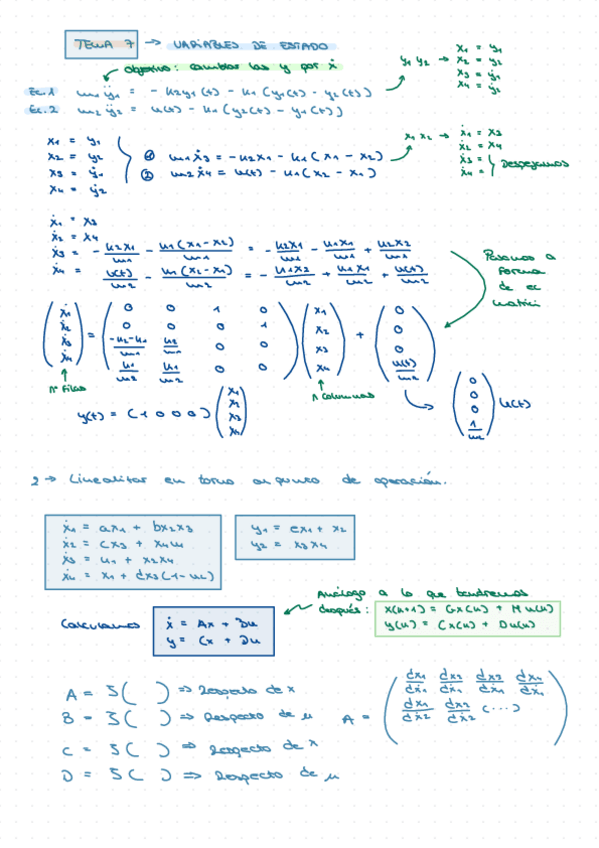 TEMA 7 → VARIABLES DE ESTADO
objetivo: cambiar las y por ẋ
y1 y2 → x1 = y1
x2 = y2
x3 = ẏ1
x4 = ẏ2
Ec.1 m1ÿ1 = - k2y1(t) - k1(y1(t) - y2(t))
Ec.2 m2ÿ2 = u(t) - k1(y2(t) - y1(t))
x1 = y1
x2 = y2
x3 = ẏ1
x4 = ẏ2
① m1ẋ3 = -k2x1 - k1(x1 - x2)
② m2ẋ4 = u(t) - k1(x2 - x1)
x1 x2 → ẋ1 = x3
ẋ2 = x4
ẋ3 =
ẋ4 = } Despejamos
ẋ1 = x3
ẋ2 = x4
ẋ3 = - k2x1/m1 - k1(x1-x2)/m1 = - k2x1/m1 - k1x1/m1 + k2x2/m1
ẋ4 = u(t)/m2 - k1(x2-x1)/m2 = - k1x2/m2 + k1x1/m2 + u(t)/m2
Pasamos a
forma
de ec
matrici
(ẋ1) = (0 0 1 0) (x1) + (0)
(ẋ2) (0 0 0 1) (x2) (0)
(ẋ3) (-k2-k1/m1 k2/m1 0 0) (x3) (0)
(ẋ4) (k1/m2 k1/m2 0 0) (x4) (u(t)/m2)
nº filas
n columnas
(0 0 0 1/m2) u(t)
y(t) = (1 0 0 0) (x1 x2 x3 x4)
2 → Linealizar en torno a punto de operación.
ẋ1 = ax1 + bx2x3
ẋ2 = cx3 + x4u1
ẋ3 = u1 + x2x4
ẋ4 = x1 + dx3(1-u2)
y1 = ex1 + x2
y2 = x3x4
Análogo a lo que tendremos
después: x(k+1) = Gx(k) + Hu(k)
y(k) = Cx(k) + Du(k)
Calculamos ẋ = Ax + Bu
y = Cx + Du
A = J( ) ⇒ Respecto de x
B = J( ) ⇒ Respecto de μ
C = J( ) ⇒ Respecto de x
D = J( ) ⇒ Respecto de μ
A = (dx1/dẋ1 dx2/dẋ1 dx3/dẋ1 dx4/dẋ1
dx1/dẋ2 dx2/dẋ2 (...))